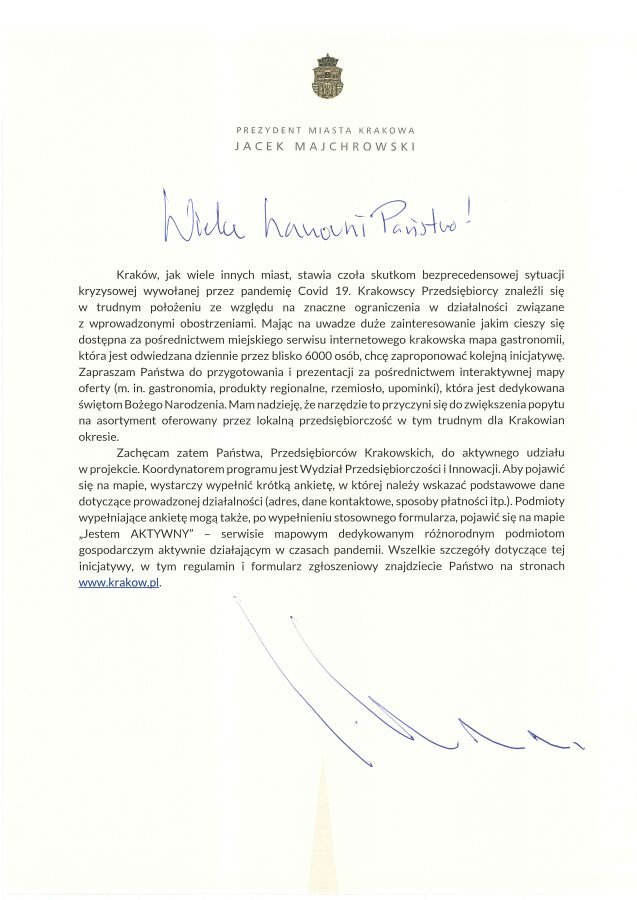 PREZYDENT MIASTA KRAKOWA
JACEK MAJCHROWSKI
Wielce Szanowni Państwo!
Kraków, jak wiele innych miast, stawia czoła skutkom bezprecedensowej sytuacji
kryzysowej wywołanej przez pandemię Covid 19. Krakowscy Przedsiębiorcy znaleźli się
w trudnym położeniu ze względu na znaczne ograniczenia w działalności związane
z wprowadzonymi obostrzeniami. Mając na uwadze duże zainteresowanie jakim cieszy się
dostępna za pośrednictwem miejskiego serwisu internetowego krakowska mapa gastronomii,
która jest odwiedzana dziennie przez blisko 6000 osób, chcę zaproponować kolejną inicjatywę.
Zapraszam Państwa do przygotowania i prezentacji za pośrednictwem interaktywnej mapy
oferty (m. in. gastronomia, produkty regionalne, rzemiosło, upominki), która jest dedykowana
świętom Bożego Narodzenia. Mam nadzieję, że narzędzie to przyczyni się do zwiększenia popytu
na asortyment oferowany przez lokalną przedsiębiorczość w tym trudnym dla Krakowian
okresie.
Zachęcam zatem Państwa, Przedsiębiorców Krakowskich, do aktywnego udziału
w projekcie. Koordynatorem programu jest Wydział Przedsiębiorczości i Innowacji. Aby pojawić
się na mapie, wystarczy wypełnić krótką ankietę, w której należy wskazać podstawowe dane
dotyczące prowadzonej działalności (adres, dane kontaktowe, sposoby płatności itp.). Podmioty
wypełniające ankietę mogą także, po wypełnieniu stosownego formularza, pojawić się na mapie
„Jestem AKTYWNY” – serwisie mapowym dedykowanym różnorodnym podmiotom
gospodarczym aktywnie działającym w czasach pandemii. Wszelkie szczegóły dotyczące tej
inicjatywy, w tym regulamin i formularz zgłoszeniowy znajdziecie Państwo na stronach
www.krakow.pl.